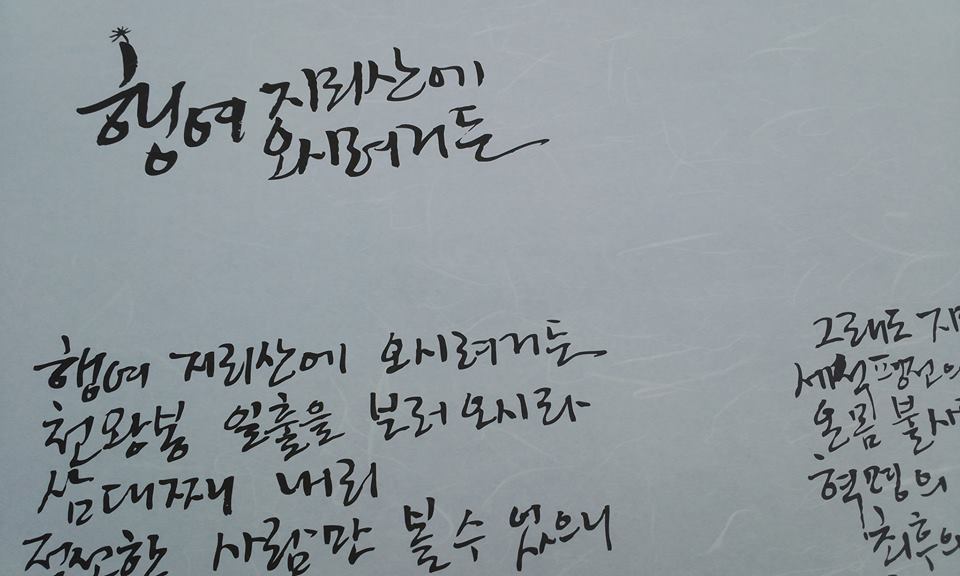 행여 지리산에
오시려거든
행여 지리산에 오시려거든
천왕봉 일출을 보러 오시라
삼대째 내리
적선한 사람만 볼 수 있으니
그래도 지
세석평전의
온몸 불사
혁명의
최후의